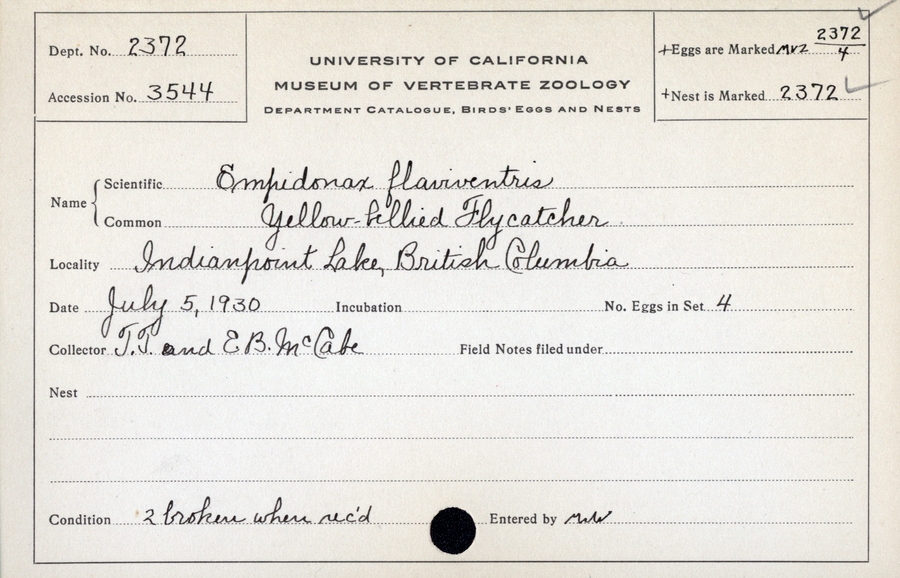 Dept. No. 2372
Accession No. 3544
UNIVERSITY OF CALIFORNIA
MUSEUM OF VERTEBRATE ZOOLOGY
DEPARTMENT CATALOGUE, BIRDS' EGGS AND NESTS
+Eggs are Marked MVZ 2372/4
+Nest is Marked 2372
Name
Scientific Empidonax flaviventris
Common Yellow-bellied Flycatcher
Locality Indianpoint Lake, British Columbia
Date July 5, 1930 Incubation No. Eggs in Set 4
Collector T.T. and E B. McCabe Field Notes filed under
Nest
Condition 2 broken when rec'd Entered by